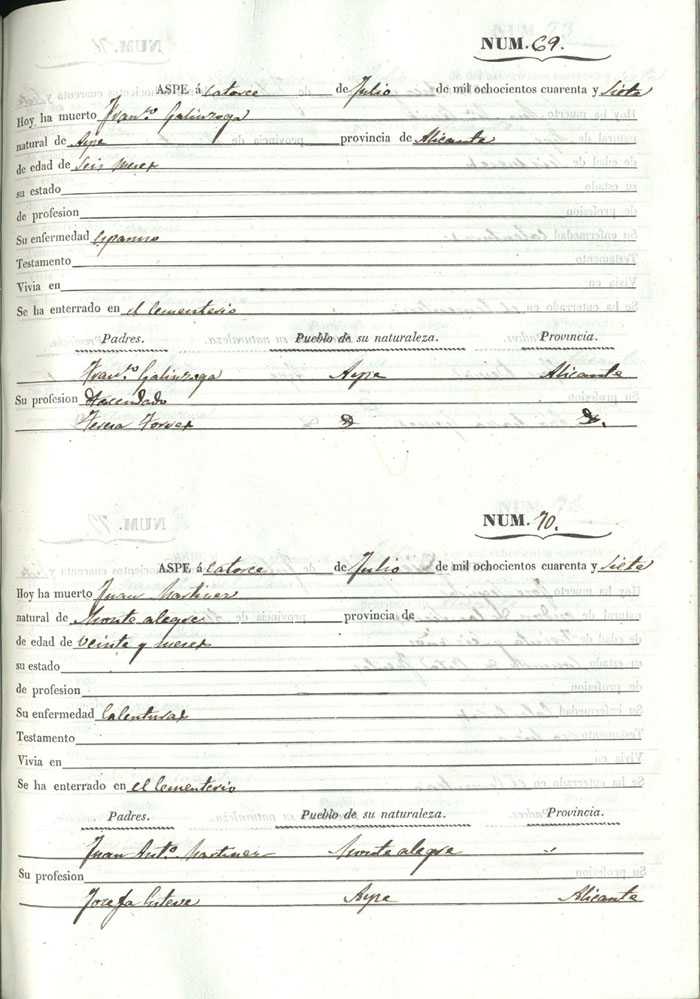 NUM. 69.
ASPE á Catorce de Julio de mil ochocientos cuarenta y Siete
Hoy ha muerto Fran.co Galinzoga
natural de Aspe provincia de Alicante
de edad de Seis meses
su estado
de profesion
Su enfermedad Espasmo
Testamento
Vivia en
Se ha enterrado en el Cementerio
Padres. Pueblo de su naturaleza. Provincia.
Fran.co Galinzoga Aspe Alicante
Su profesion Hacendado
Teresa Torres
NUM. 70.
ASPE á Catorce de Julio de mil ochocientos cuarenta y Siete
Hoy ha muerto Juan Martinez
natural de Monte alegre provincia de
de edad de Veinte y meses
su estado
de profesion
Su enfermedad Calenturas
Testamento
Vivia en
Se ha enterrado en el Cementerio
Padres. Pueblo de su naturaleza. Provincia.
Juan Ant.o Martinez Monte alegre
Su profesion
Josefa Esteve Aspe Alicante